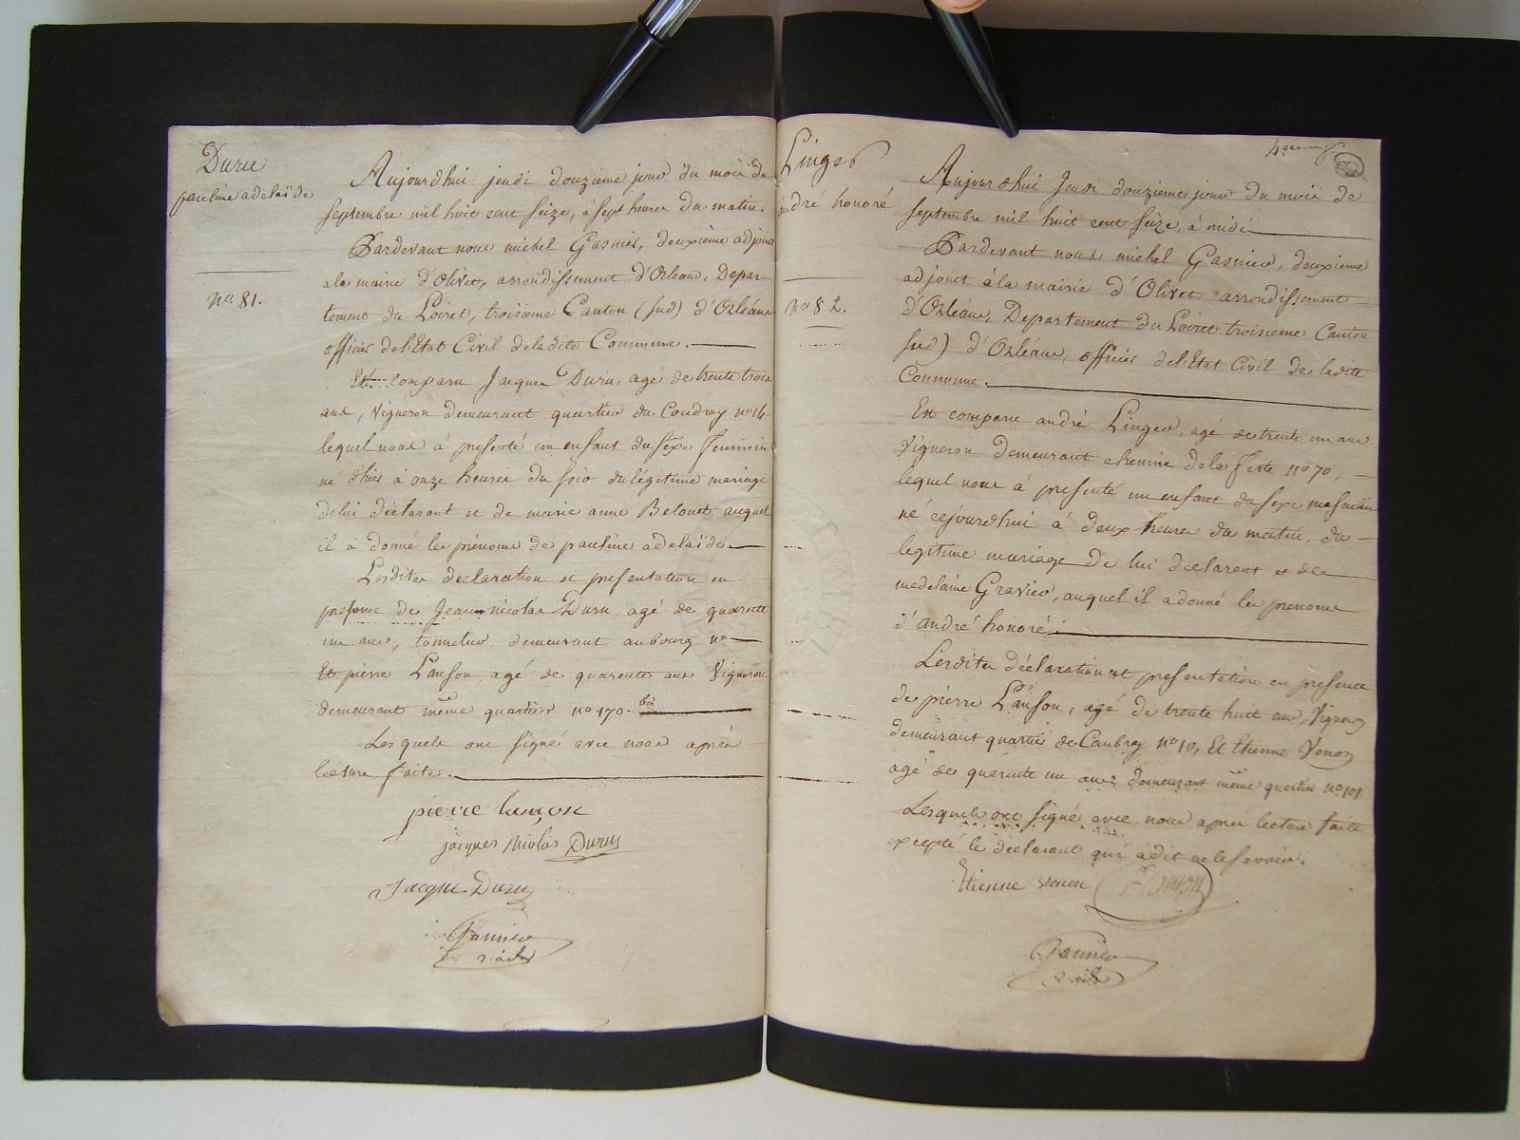 Duru
pauline adelaïde
nº 81.
Aujourdhui jeudi douzieme jour du mois de
septembre mil huit cent seize, à sept heures du matin.
Pardevant nous michel Gasnier, deuxieme adjoint
a la mairie d'Olivet, arrondissement d'Orleans, Depar-
tement du Loiret, troisieme Canton (sud) d'Orléans
officier de l'Etat Civil de ladite Commune.
Est comparu Jacques Duru, agé de trente trois
ans, Vigneron demeurant quartier du Coudray nº 16
lequel nous à presenté un enfant du sexe Feminin
né d'hier à onze heures du soir du légitime mariage
de lui déclarant et de marie anne Belouet auquel
il à donné les prénoms de pauline adelaïde
Lesdites declaration et presentation en
presence de Jean nicolas Duru agé de quarante
un ans, tonnelier demeurant au bourg nº
Et pierre Lanson, agé de quarante ans Vigneron
demeurant même quartier nº 170 bis
Lesquels ont signé avec nous après
lecture faite.
pierre lanson
jacques nicolas Duru
Jacque Duru
Gasnier
adj
Linger
andré honoré
nº 82.
Aujourdhui Jeudi douzieme jour du mois de
septembre mil huit cent seize, à midi
Pardevant nous michel Gasnier, deuxieme
adjoint à la mairie d'Olivet arrondissement
d'Orléans, Departement du Loiret troisieme Canton
sud) d'Orléans, officier de l'Etat Civil de ladite
Commune.
Est comparu andré Linger, agé de trente un ans
Vigneron demeurant chemin de la Ferté nº 70,
lequel nous à presenté un enfant du sexe masculin
né cejourdhui à deux heures du matin, du
legitime mariage de lui déclarant et de
medelaine Gravier, auquel il a donné les prenoms
d'andré honoré.
Lesdites déclaration et presentation en presence
de pierre Lanson, agé de trente huit ans, Vigneron
demeurant quartier de Caubray nº 10, Et Etienne Vonon
agé de quarante un ans demeurant même quartier nº 101
Lesquels ont signé avec nous apres lecture faite
excepté le déclarant qui a dit ne le savoir.
Etienne vonon
Gasnier
adj